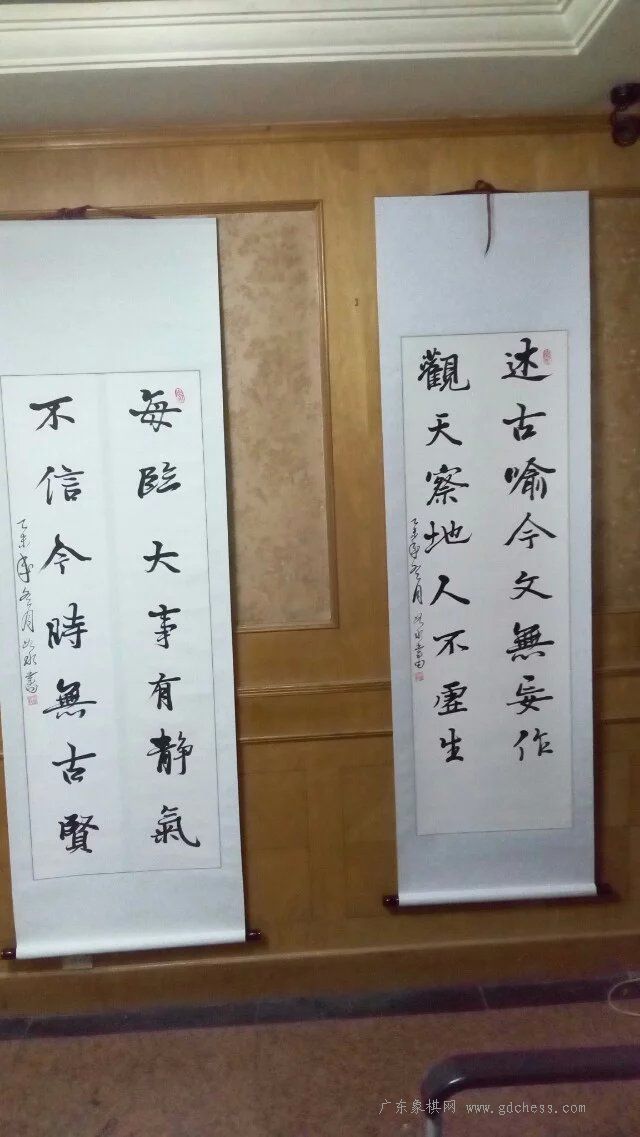 述古喻今文無妄作
觀天察地人不虛生
乙未年冬月
書
每臨大事有静氣
不信今時無古賢
乙未年冬月
書
广东象棋网 www.gdchess.com